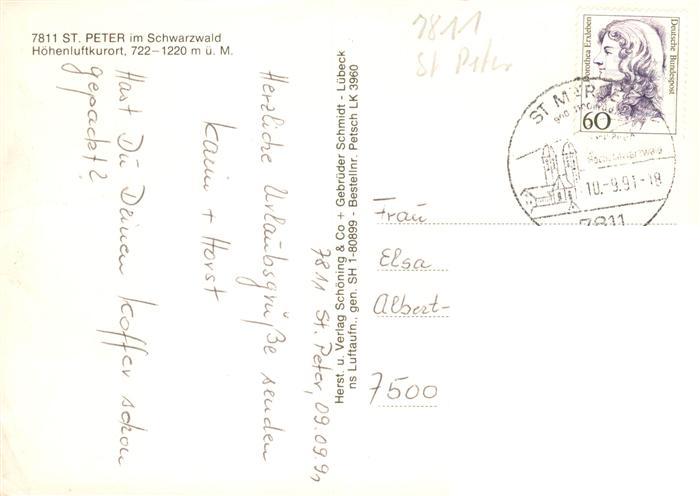 7811 ST. PETER im Schwarzwald
Höhenluftkurort, 722–1220 m ü. M.
7811
St Peter
7811 St. Peter, 09.09.91
Herzliche Urlaubsgrüße senden
Karin + Horst
Hast Du Deinen Koffer schon
gepackt?
Herst. u. Verlag Schöning & Co + Gebrüder Schmidt - Lübeck
ns Luftaufn., gen. SH 1-80899 - Bestellnr. Petsch LK 3960
Dorothea Erxleben
Deutsche Bundespost
60
ST MÄRGEN
10.-9.91-18
7811
Frau
Elsa
Albert-
7500